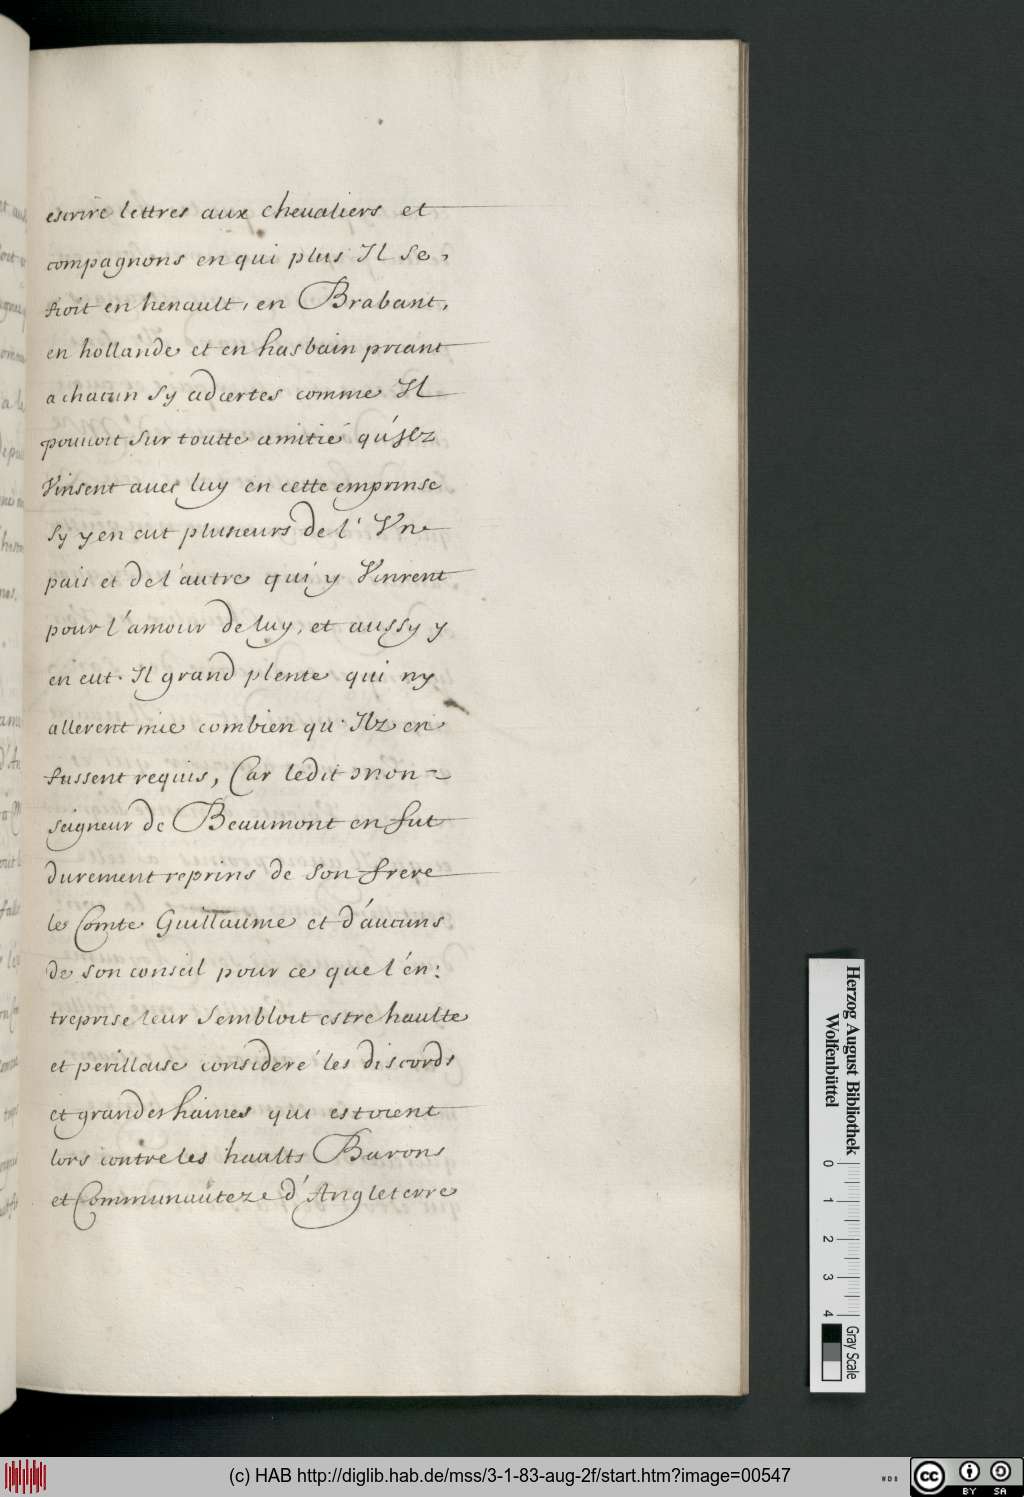 escrire lettres aux chevaliers et
compagnons en qui plus Il se,
fioit en henault, en Brabant,
en hollande et en hasbain priant
a chacun sy adcertes comme Il
pouuoit sur toutte amitié qu'jlz
Vinsent auec luy en cette emprinse
sy y en eut plusieurs de l' Vn
pais et de l'autre qui y Vinrent
pour l'amour de luy, et aussy y
en eut. Il grand plente qui ny
allerent mie combien qu' Ilz en
fussent requis, Car ledit mon=
seigneur de Beaumont en fut
durement reprins de son frere
le Comte Guillaume et d'aucuns
de son conseil pour ce que l'én:
treprise leur sembloit estre haulte
et perilleuse consideré les discords
et grandes haines qui estoient
lors contre les haults Barons
et Communautez d'Angleterre
Herzog August Bibliothek
Wolfenbüttel
0 1 2 3 4
Gray Scale
(c) HAB http://diglib.hab.de/mss/3-1-83-aug-2f/start.htm?image=00547
cc BY SA